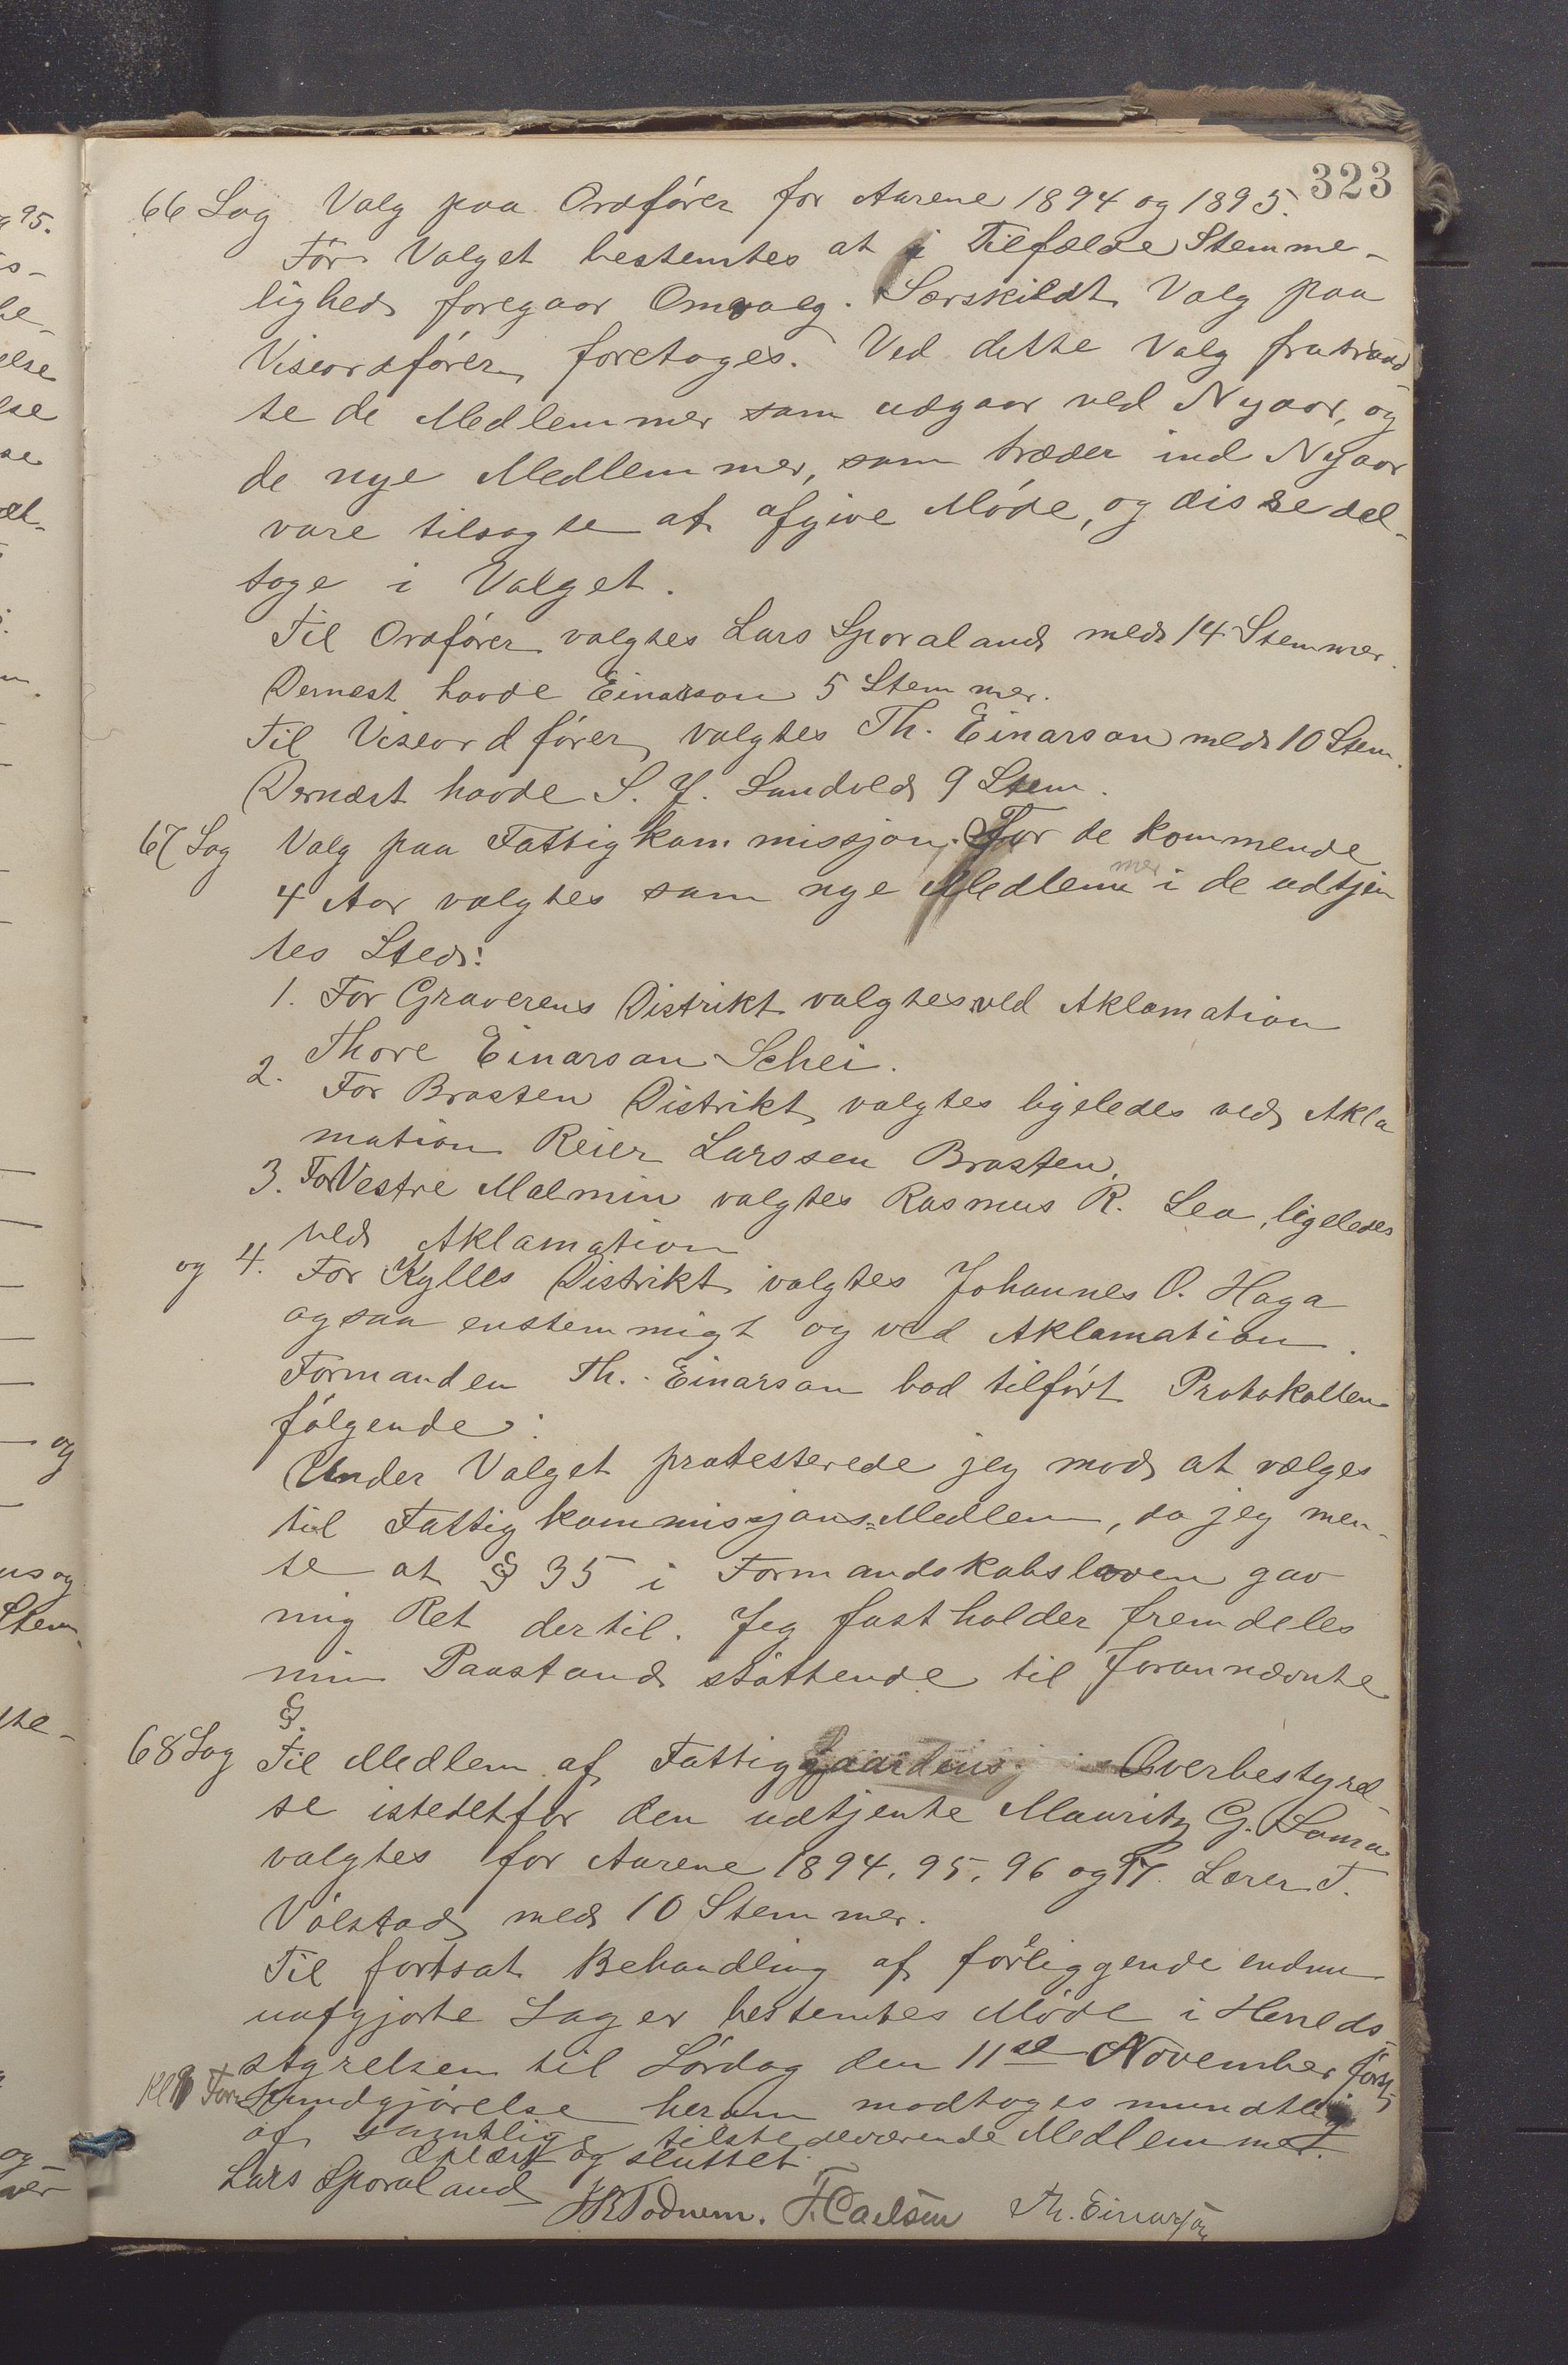 323
66 Sag Valg paa Ordfører for Aarene 1894 og 1895.
Før Valget bestemtes at i Tilfælde Stemme-
lighed foregaar Omvalg. Særskildt Valg paa
Viseordfører foretages. Ved dette Valg fratraad
te de Medlemmer som udgaar ved Nyaar, og
de nye Medlemmer, som træder ind Nyaar
vare tilsagte at afgive Møde, og disse del-
toge i Valget.
Til Ordfører valgtes Lars Sporaland med 14 Stemmer.
Dernest havde Einarson 5 Stemmer.
Til Viseordfører valgtes Th. Einarson med 10 Stem.
Dernæst havde S. J. Sandvold 9 Stem.
67 Sag Valg paa Fattigkommissjon. For de kommende
4 Aar valgtes som nye Medlemmer i de udtjen
tes Sted:
1. For Graverens Distrikt valgtes ved Aklamation
Thore Einarson Schei.
2. For Brasten Distrikt valgtes ligeledes ved Akla
mation Reier Larssen Brasten.
3. For Vestre Malmin valgtes Rasmus R. Lea, ligeledes
ved Aklamation
og 4. For Kylles Distrikt valgtes Johannes O. Haga
ogsaa enstemmigt og ved Aklamation.
Formanden Th. Einarson bad tilført Protokollen
følgende:
Under Valget protesterede jeg mod at vælges
til Fattigkommissjons-Medlem, da jeg men-
te at § 35 i Formandskabsloven gav
mig Ret dertil. Jeg fastholder fremdeles
min Paastand støttende til forannævnte
§.
68 Sag Til Medlem af Fattiggaardens Overbestyrel-
se istedetfor den udtjente Mauritz G. Lama
valgtes for Aarene 1894, 95, 96 og 97. Lærer T.
Vølstad med 10 Stemmer.
Til fortsat Behandling af foreliggende endnu
uafgjorte Sager bestemtes Møde i Herreds-
styrelsen til Lørdag den 11te November førstk.
Kl 8 Form Kundgjørelse herom modtoges mundtlig
af samtlige tilstedeværende Medlemmer.
Oplæst og sluttet
Lars Sporaland JRTodnem. T. Carlsen Th. Einarson